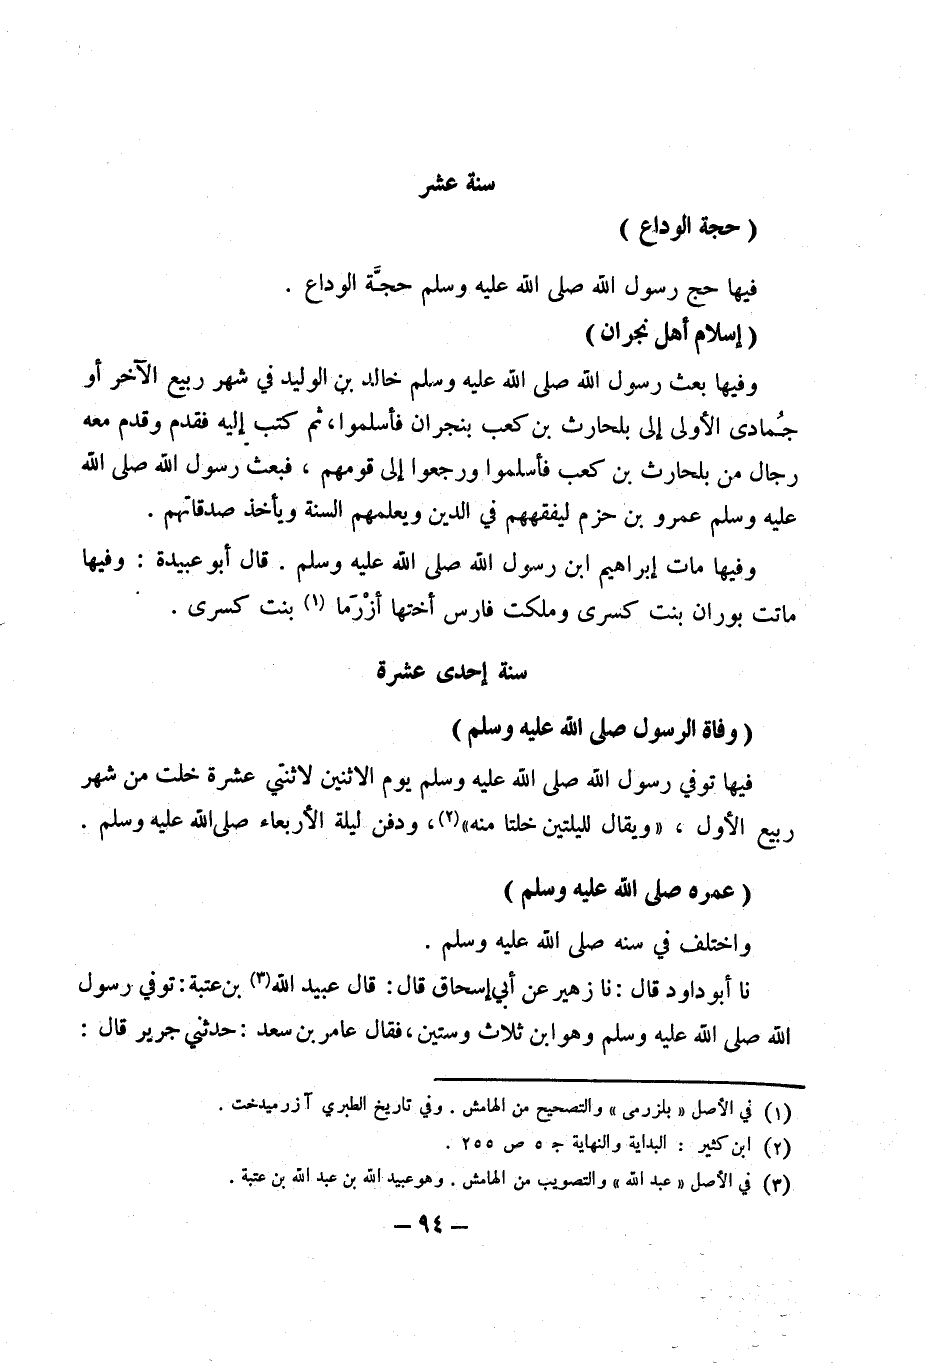 سنة عشر
( حجة الوداع )
فيها حج رسول الله صلى الله عليه وسلم حجَّة الوداع .
( إسلام أهل نجران )
وفيها بعث رسول الله صلى الله عليه وسلم خالد بن الوليد في شهر ربيع الآخر أو
جُمادى الأولى إلى بلحارث بن كعب بنجران فأسلموا ، ثم كتب إليه فقدم وقدم معه
رجال من بلحارث بن كعب فأسلموا ورجعوا إلى قومهم ، فبعث رسول الله صلى الله
عليه وسلم عمرو بن حزم ليفقههم في الدين ويعلمهم السنة ويأخذ صدقاتهم .
وفيها مات إبراهيم ابن رسول الله صلى الله عليه وسلم . قال أبو عبيدة : وفيها
ماتت بوران بنت كسرى وملكت فارس أختها أزْرَما (١) بنت كسرى .
سنة إحدى عشرة
( وفاة الرسول صلى الله عليه وسلم )
فيها توفي رسول الله صلى الله عليه وسلم يوم الاثنين لاثنتي عشرة خلت من شهر
ربيع الأول ، « ويقال لليلتين خلتا منه»(٢)، ودفن ليلة الأربعاء صلى الله عليه وسلم .
( عمره صلى الله عليه وسلم )
واختلف في سنه صلى الله عليه وسلم .
نا أبو داود قال : نا زهير عن أبي إسحاق قال : قال عبيد الله(٣) بن عتبة : توفي رسول
الله صلى الله عليه وسلم وهو ابن ثلاث وستين ، فقال عامر بن سعد : حدثني جرير قال :
(١) في الأصل « بلزرمى » والتصحيح من الهامش . وفي تاريخ الطبري آزرميدخت .
(٢) ابن كثير : البداية والنهاية جـ ٥ ص ٢٥٥ .
(٣) في الأصل « عبد الله » والتصويب من الهامش . وهو عبيد الله بن عبد الله بن عتبة .
– ٩٤ –